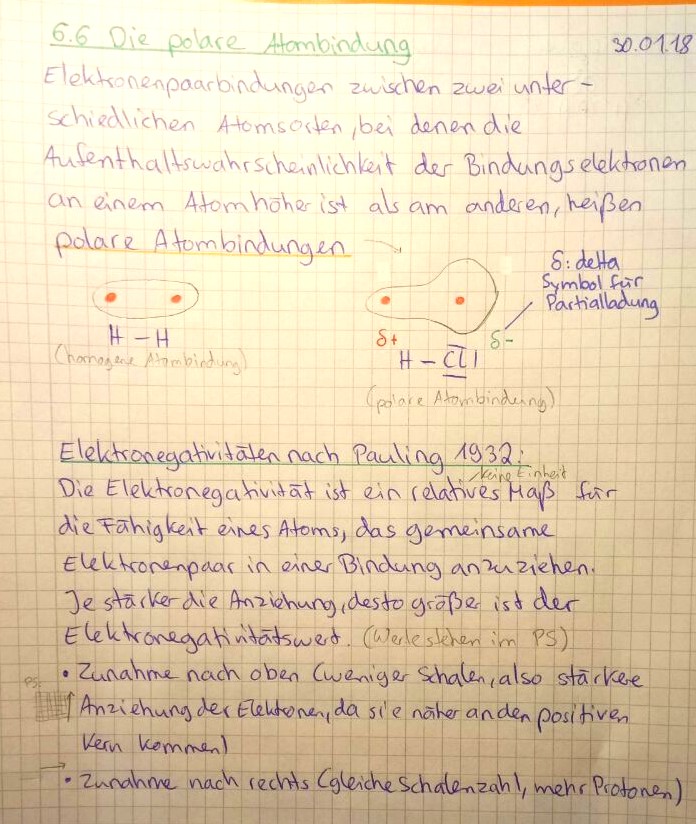 6.6 Die polare Atombindung 30.01.18
Elektronenpaarbindungen zwischen zwei unter-
schiedlichen Atomsorten, bei denen die
Aufenthaltswahrscheinlichkeit der Bindungselektronen
an einem Atom höher ist als am anderen, heißen
polare Atombindungen
δ: delta
Symbol für
Partialladung
H – H
(homogene Atombindung)
δ+ δ-
H – Cl
(polare Atombindung)
Elektronegativitäten nach Pauling 1932:
keine Einheit
Die Elektronegativität ist ein relatives Maß für
die Fähigkeit eines Atoms, das gemeinsame
Elektronenpaar in einer Bindung anzuziehen.
Je stärker die Anziehung, desto größer ist der
Elektronegativitätswert. (Werte stehen im PS)
• Zunahme nach oben (weniger Schalen, also stärkere
PS:
Anziehung der Elektonen, da sie näher an den positiven
Kern kommen)
• Zunahme nach rechts (gleiche Schalenzahl, mehr Protonen)